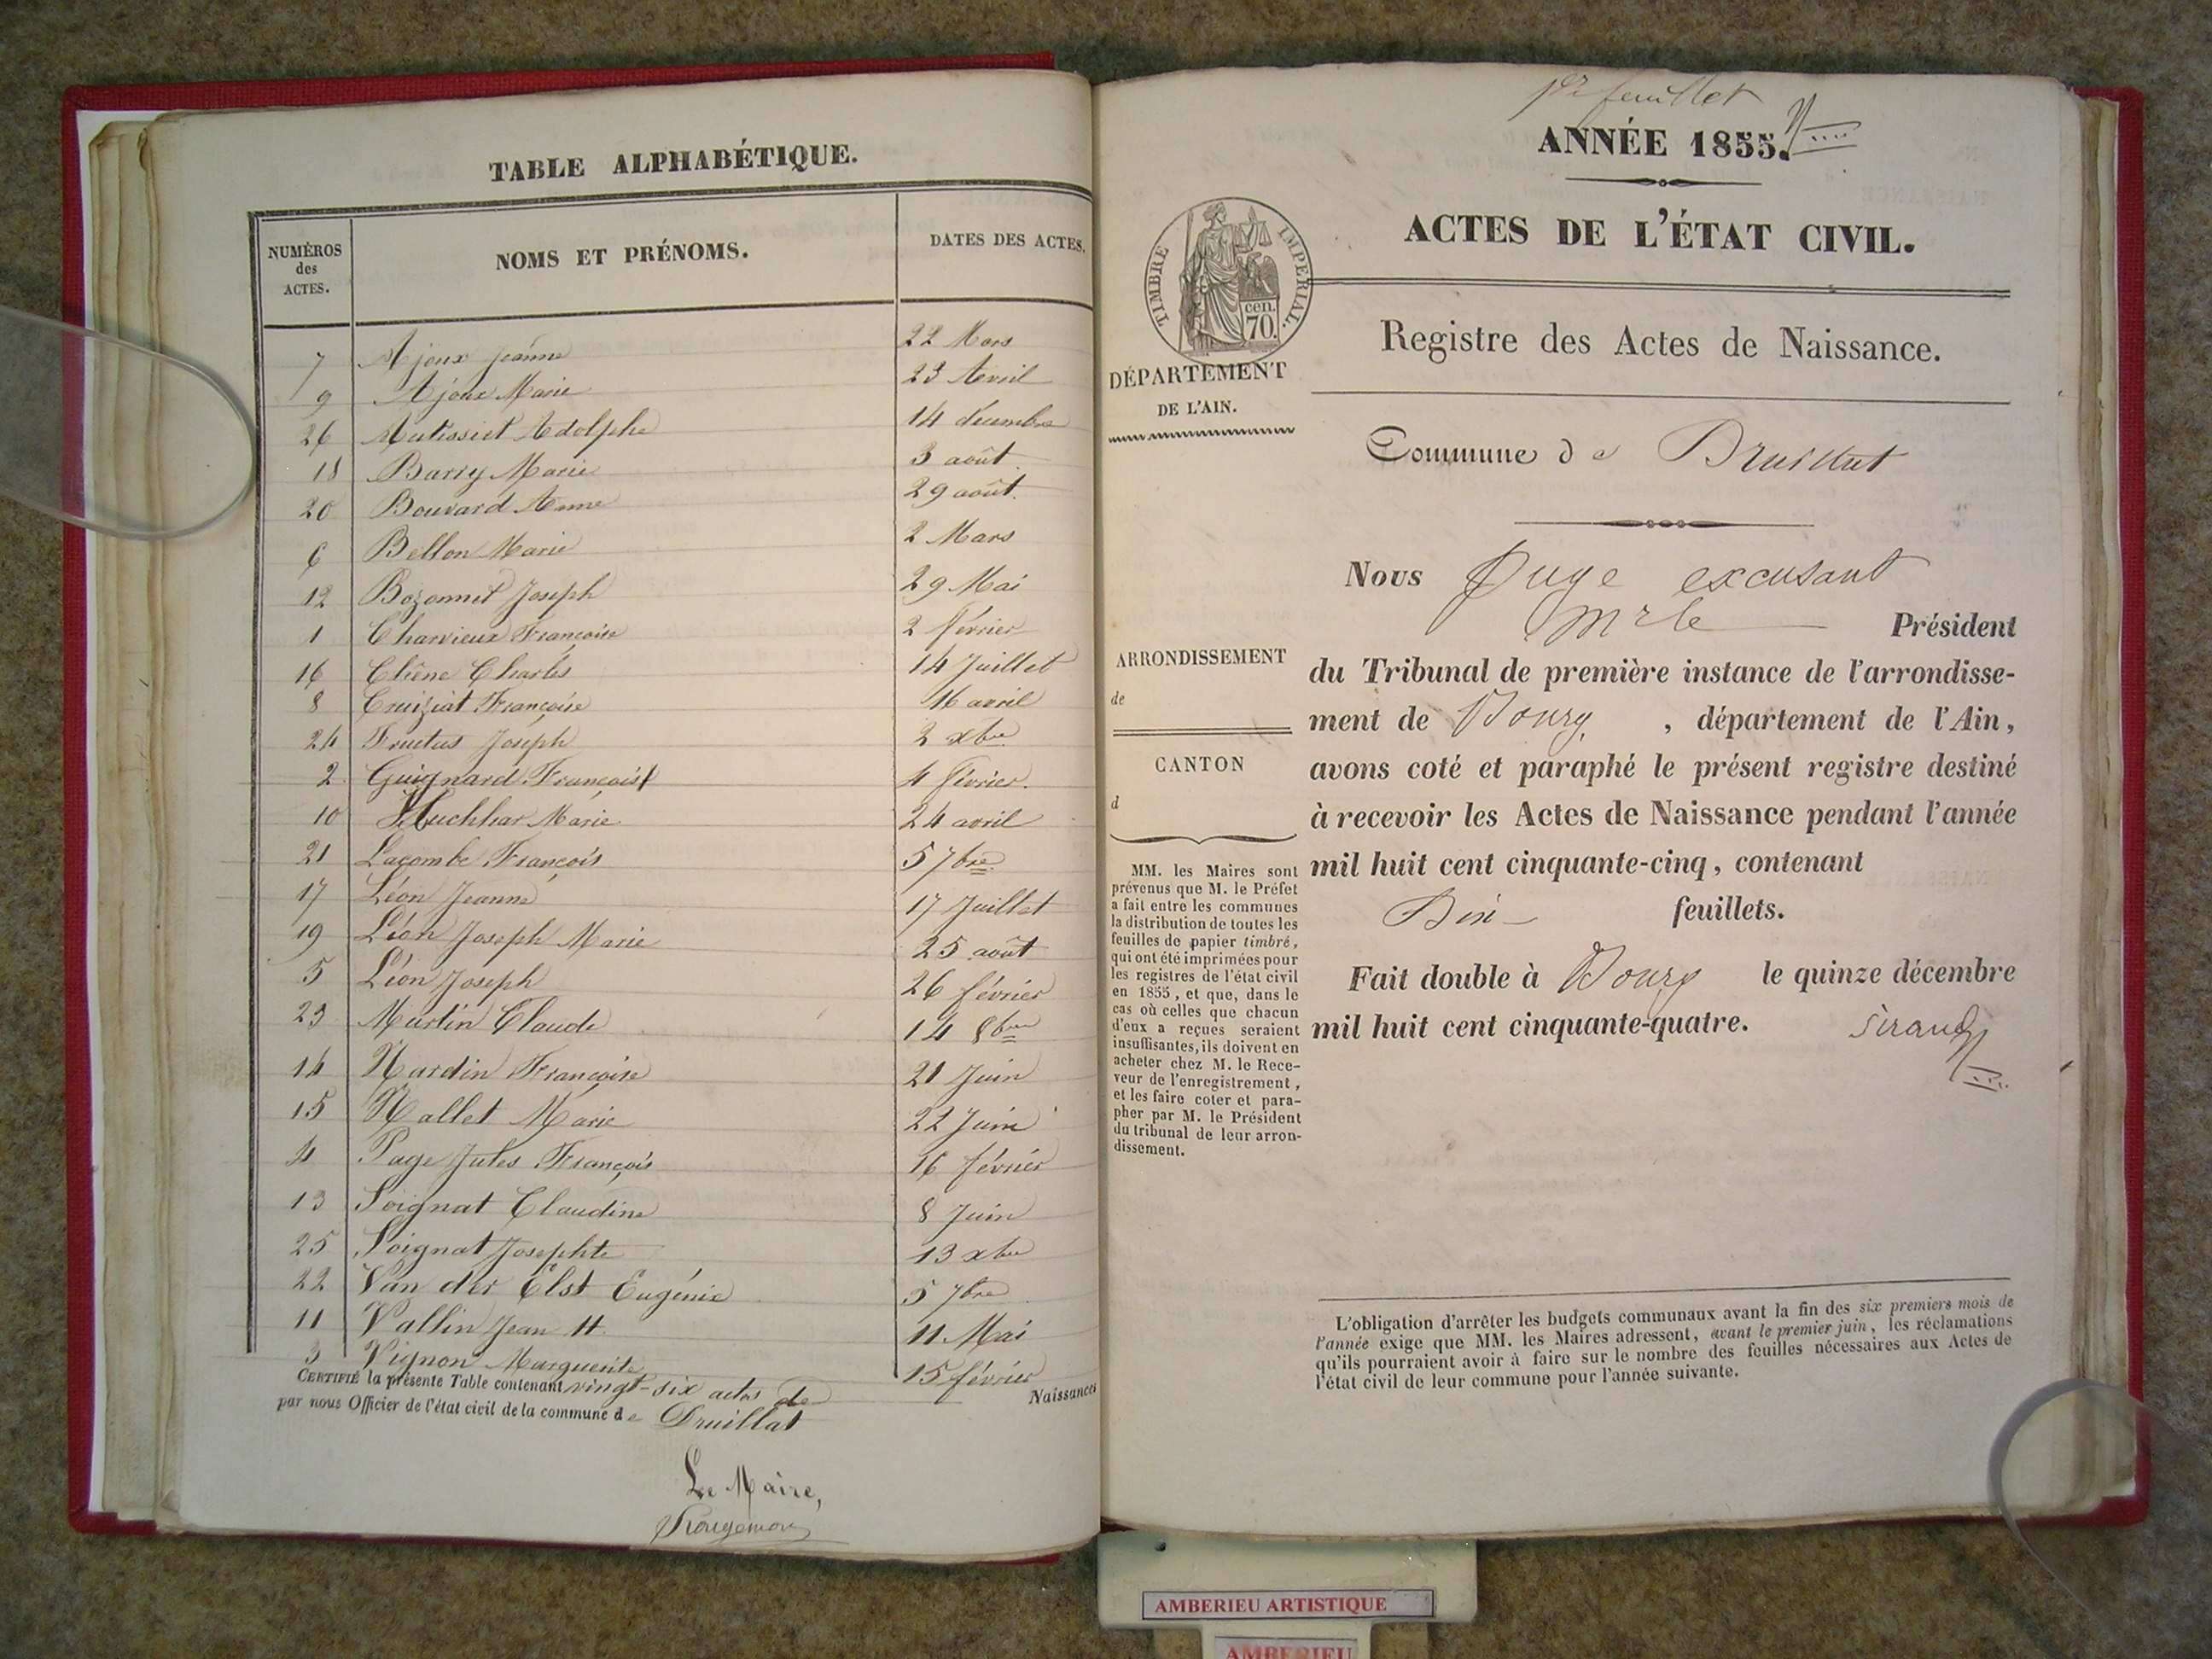 TABLE ALPHABÉTIQUE.
NUMÉROS des ACTES. NOMS ET PRÉNOMS. DATES DES ACTES.
7 Ajoux Jeanne 22 Mars
9 Ajoux Marie 23 Avril
26 Autissiet Adolphe 14 décembre
18 Barry Marie 3 août
20 Bouvard Anne 29 août.
6 Bellon Marie 2 Mars
12 Bozonnet Joseph 29 Mai
1 Charvieux Françoise 2 février
16 Chêne Charles 14 Juillet
8 Cruiziat Françoise 16 avril
24 Fructus Joseph 2 xbre
2 Guignard François 4 février.
10 Huchhar Marie 24 avril
21 Lacombe François 5 7bre
17 Léon Jeanne 17 Juillet
19 Léon Joseph Marie 25 août
5 Léon Joseph 26 février
23 Martin Claude 14 8bre
14 Nardin Françoise 21 Juin
15 Nallet Marie 22 Juin
4 Page Jules François 16 février
13 Soignat Claudine 8 Juin
25 Soignat Josephte 13 xbre
22 Van der Elst Eugénie 5 7bre
11 Vallin Jean H. 11 Mai
3 Vignon Marguerite 15 février
CERTIFIÉ la présente Table contenant vingt-six actes de Naissances
par nous Officier de l'état civil de la commune de Druillat
Le Maire,
Rougemont
1er feuillet
ANNÉE 1855.
ACTES DE L'ÉTAT CIVIL.
TIMBRE IMPERIAL.
cen.
70.
Registre des Actes de Naissance.
DÉPARTEMENT
DE L'AIN.
Commune de Druillat
Nous Juge excusant
Mr le Président
ARRONDISSEMENT
de
CANTON
d
du Tribunal de première instance de l'arrondisse-
ment de Bourg, département de l'Ain,
avons coté et paraphé le présent registre destiné
à recevoir les Actes de Naissance pendant l'année
mil huit cent cinquante-cinq, contenant
Dix feuillets.
Fait double à Bourg le quinze décembre
mil huit cent cinquante-quatre.
Sirand
MM. les Maires sont
prévenus que M. le Préfet
a fait entre les communes
la distribution de toutes les
feuilles de papier timbré,
qui ont été imprimées pour
les registres de l'état civil
en 1855, et que, dans le
cas où celles que chacun
d'eux a reçues seraient
insuffisantes, ils doivent en
acheter chez M. le Rece-
veur de l'enregistrement,
et les faire coter et para-
pher par M. le Président
du tribunal de leur arron-
dissement.
L'obligation d'arrêter les budgets communaux avant la fin des six premiers mois de
l'année exige que MM. les Maires adressent, avant le premier juin, les réclamations
qu'ils pourraient avoir à faire sur le nombre des feuilles nécessaires aux Actes de
l'état civil de leur commune pour l'année suivante.
AMBERIEU ARTISTIQUE
AMBERIEU